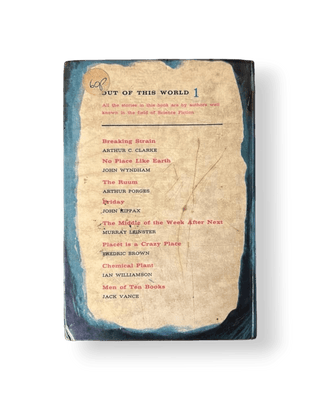 OUT OF THIS WORLD 1
All the stories in this book are by authors well
known in the field of Science Fiction
Breaking Strain
ARTHUR C. CLARKE
No Place Like Earth
JOHN WYNDHAM
The Ruum
ARTHUR PORGES
Friday
JOHN KIPPAX
The Middle of the Week After Next
MURRAY LEINSTER
Placet is a Crazy Place
FREDRIC BROWN
Chemical Plant
IAN WILLIAMSON
Men of Ten Books
JACK VANCE